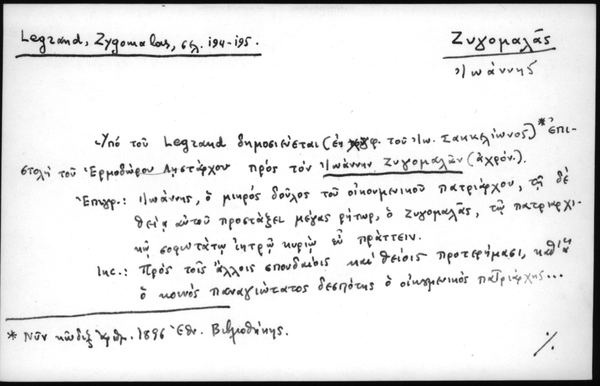 Legrand, Zygomalas, σελ. 194-195.
Ζυγομαλᾶς
Ἰωάννης
Ὑπὸ τοῦ Legrand δημοσιεύεται (ἐκ χφ. τοῦ Ἰω. Σακκελίωνος)* ἐπι-
στολὴ τοῦ Ἑρμοδώρου Ληστάρχου πρὸς τὸν Ἰωάννην Ζυγομαλᾶν (ἀχρόν.).
Ἐπιγρ.: Ἰωάννης, ὁ μικρὸς δοῦλος τοῦ οἰκουμενικοῦ πατριάρχου, τῇ δὲ
θείᾳ αὐτοῦ προστάξει μέγας ῥήτωρ, ὁ Ζυγομαλᾶς, τῷ πατριαρχι-
κῷ σοφωτάτῳ ἰητρῷ κυρίῳ εὖ πράττειν.
Ἰνc.: Πρὸς τοῖς ἄλλοις σπουδαίοις καὶ θείοις προτερήμασι, καθ' ἃ
ὁ κοινὸς παναγιώτατος δεσπότης ὁ οἰκουμενικὸς πατριάρχης...
* Νῦν κῶδιξ ἀριθμ. 1896 Ἐθν. Βιβλιοθήκης.
./.